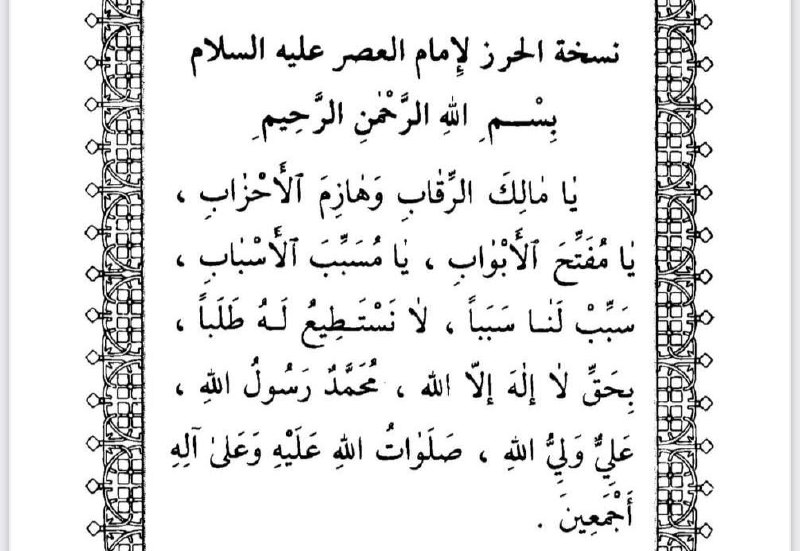 نسخة الحرز لإمام العصر عليه السلام
بِسْـمِ اللهِ الرَّحْمٰنِ الرَّحِيمِ
يٰا مٰالِكَ الرِّقٰابِ وَهٰازِمَ ٱلأَحْزٰابِ ،
يٰا مُفَتِّحَ ٱلأَبْوٰابِ ، يٰا مُسَبِّبَ ٱلأَسْبٰابِ ،
سَبِّبْ لَنٰـا سَبَباً ، لٰا نَسْتَـطِيعُ لَـهُ طَلَباً ،
بِحَقِّ لٰا إِلٰهَ إلّا الله ، مُحَمَّدٌ رَسُولُ اللهِ ،
عَلِيٌّ وَلِيُّ اللهِ ، صَلَوٰاتُ اللهِ عَلَيْهِ وَعَلىٰ آلِهِ
أَجْمَعِينَ .